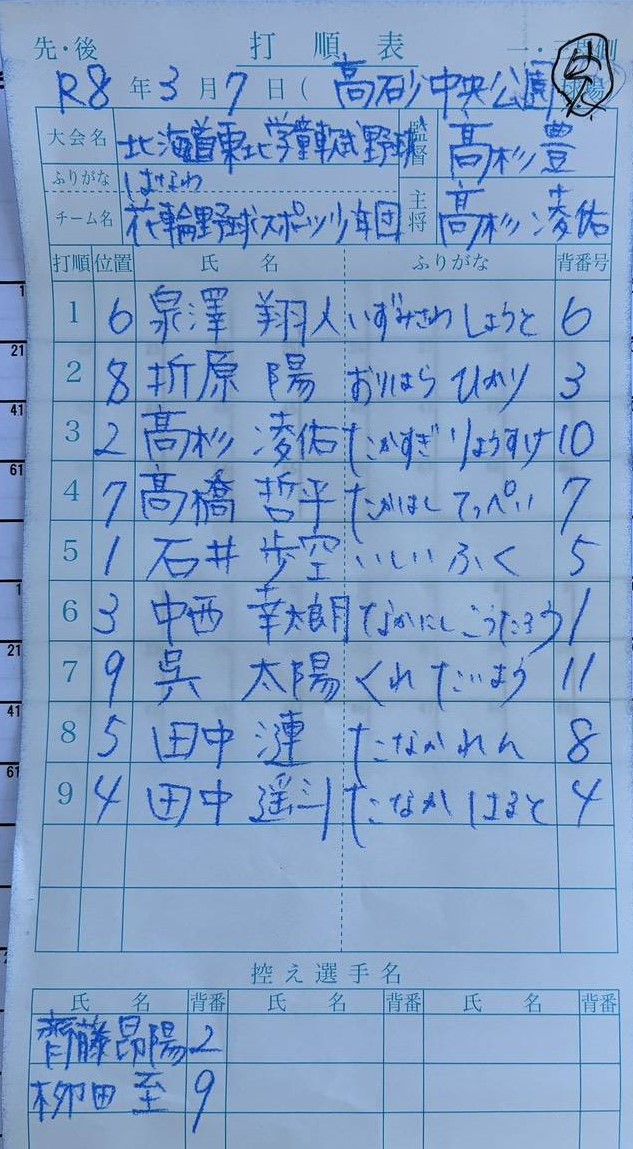 先・後 打順表 一・ 側
R8年3月7日(高砂中央公園 球場
大会名 北海道東北学童軟式野球 監督 高杉 豊
ふりがな はなわ
チーム名 花輪野球スポーツ少年団 主将 高杉 凌佑
打順 位置 氏名 ふりがな 背番号
1 6 泉澤 翔人 いずみさわ しょうと 6
2 8 折原 陽 おりはら ひかり 3
3 2 高杉 凌佑 たかすぎ りょうすけ 10
4 7 高橋 哲平 たかはし てっぺい 7
5 1 石井 歩空 いしい ふく 5
6 3 中西 幸太朗 なかにし こうたろう 1
7 9 呉 太陽 くれ たいよう 11
8 5 田中 漣 たなか れん 8
9 4 田中 遥斗 たなか はると 4
控え選手名
氏名 背番 氏名 背番 氏名 背番
齊藤 昂陽 2
柳田 至 9